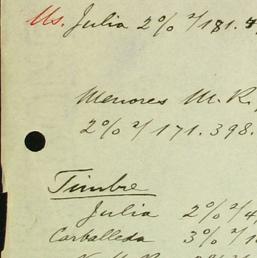 Us. Julia 2% s/181.
Menores M. R.
2% s/ 171.398.
Timbre
Julia 2% s/4
Carballeda 3% s/1